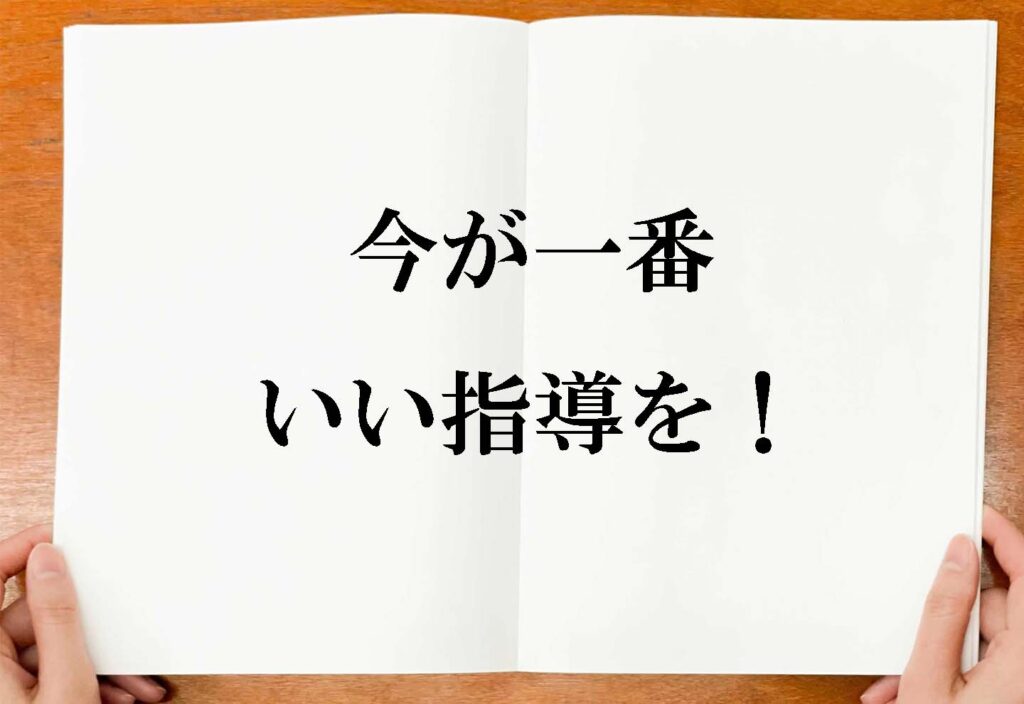 今が一番
いい指導を！